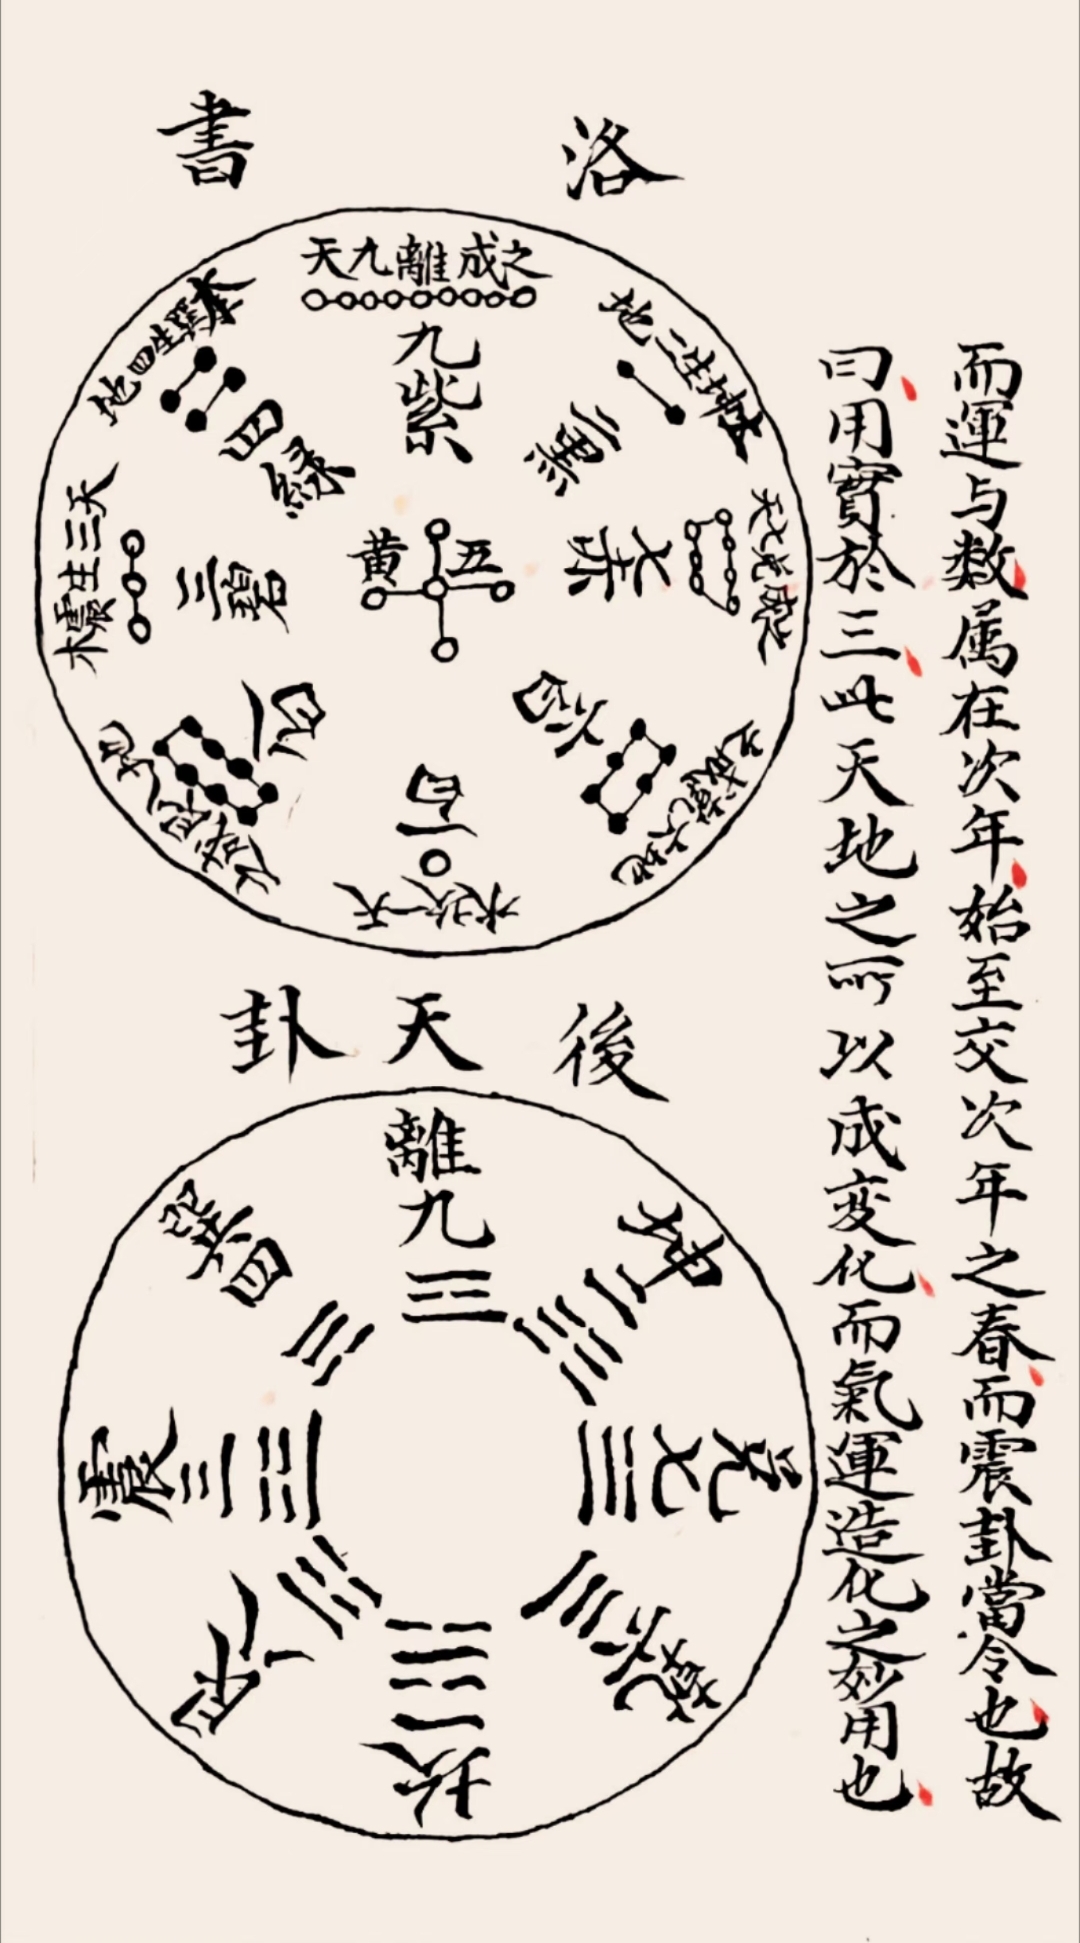 而運与数属在次年始至交次年之春而震卦當令也故
曰用實於三此天地之所以成变化而氣運造化之妙用也
洛書
天九離成之
九紫
地二生坤
二黑
天七兌成之
七赤
地六乾成之
六白
天一坎水
一白
地八艮成之
八白
天三生震木
三碧
地四生巽木
四綠
五黃
後天卦
離九
坤二
兌七
乾六
坎一
艮八
震三
巽四